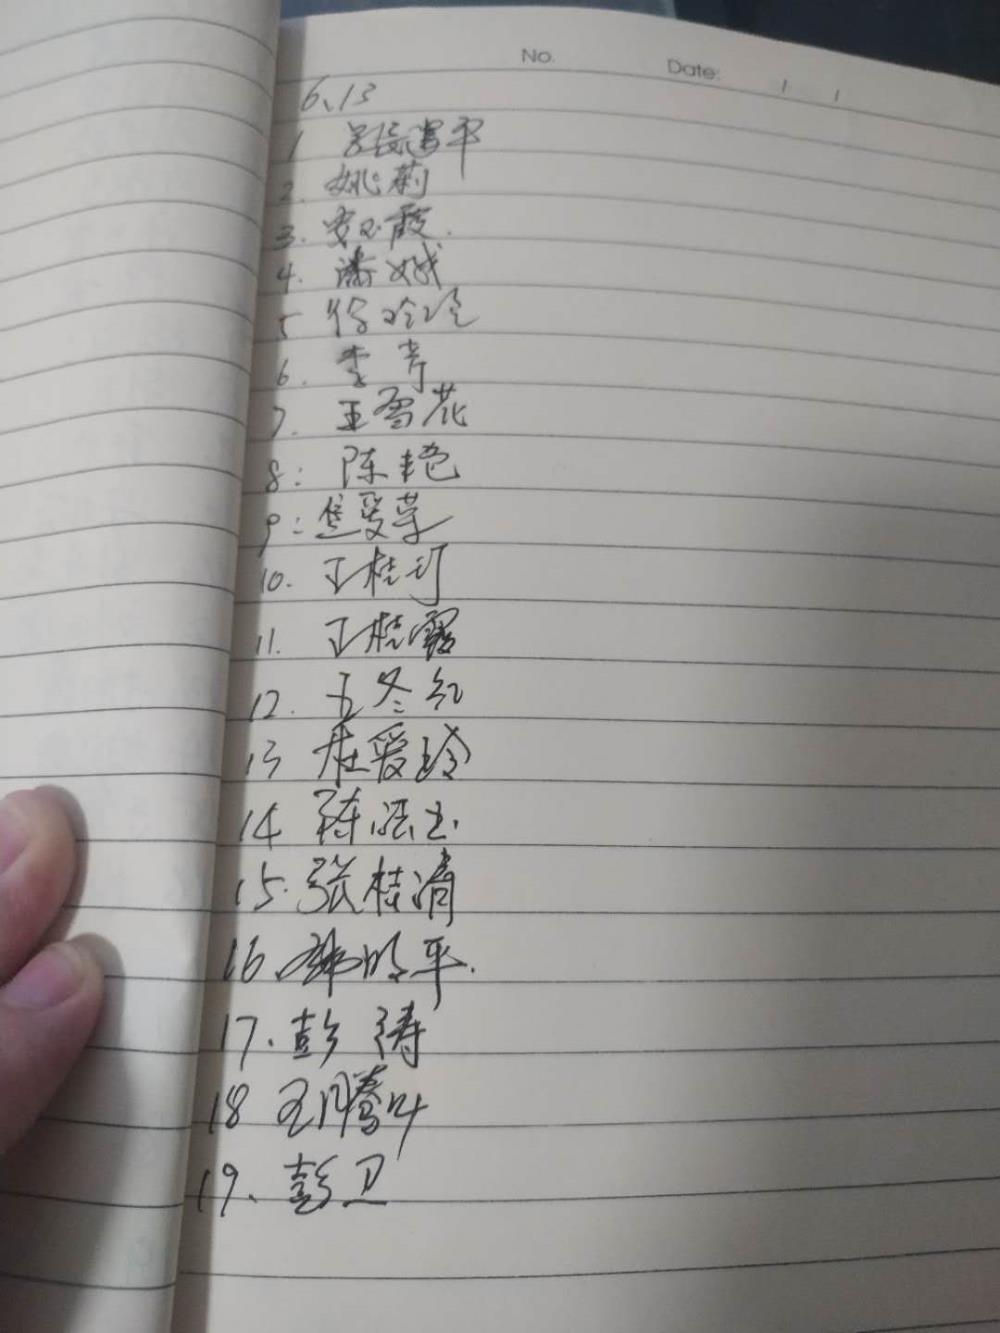 No.
Date: / /
6、13
1
2. 姚莉
3. 安玉霞.
4. 潘娥
5 徐玲玲
6. 李芳
7. 王雪花
8: 陈艳
9: 焦爱草
10. 王桂珂
11. 王桂霞
12. 王冬红
13 杜爱玲
14 陈玉
15. 张桂清
16. 韩明平.
17. 彭涛
18 王腾叶
19、彭卫